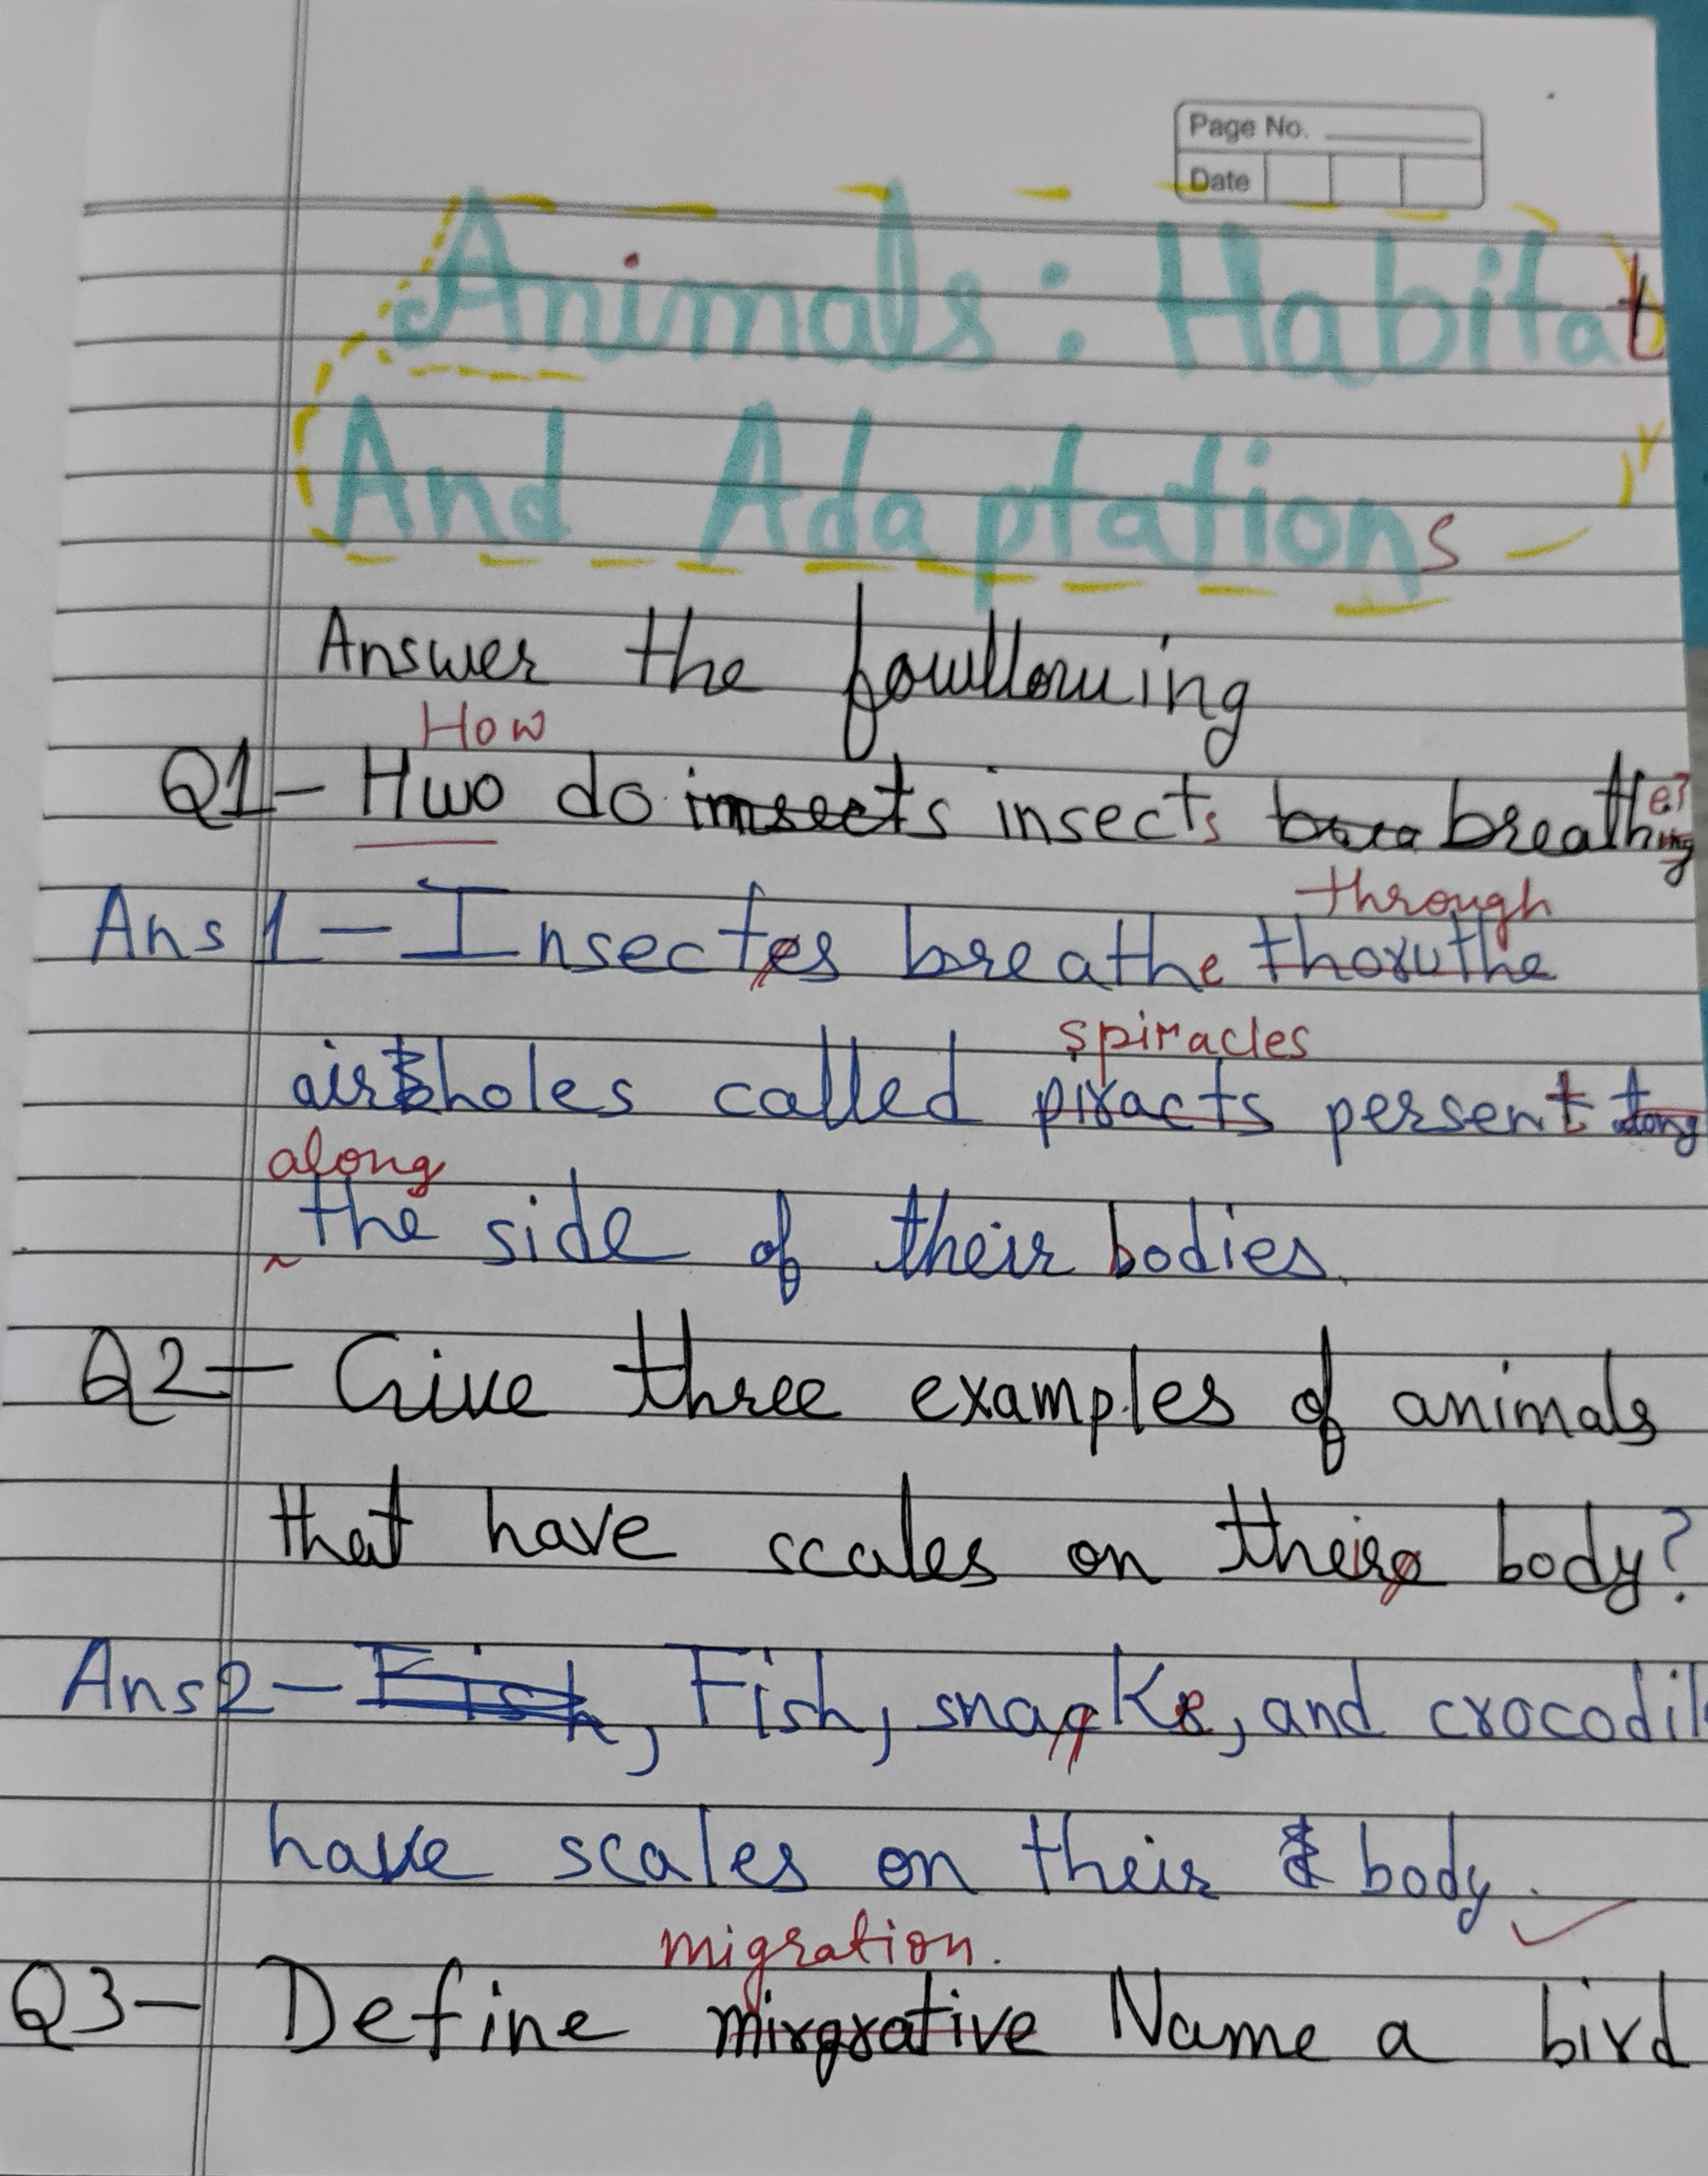 Page No.
Date
Animals: Habitat
And Adaptations
Answer the fowllowing
How
Q1- Hwo do insects insects breathe?
through
Ans 1- Insectes breathe thoruthe
spiracles
airholes called piracts persent
along
the side of their bodies.
Q2- Give three examples of animals
that have scales on their body?
Ans2- Fish, Fish, snake, and crocodil
have scales on their body.
migration.
Q3- Define mirgrative Name a bird